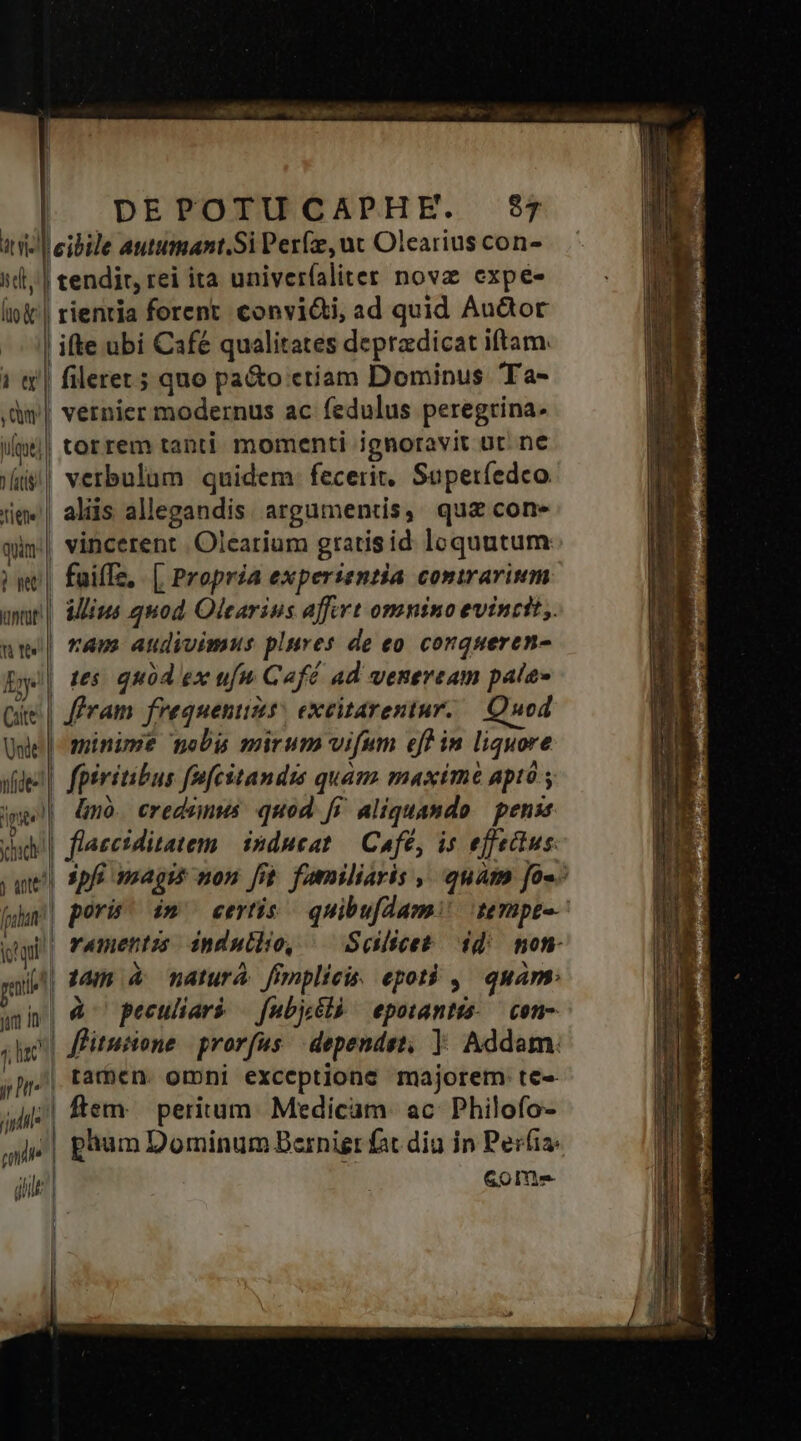 DE POTU CAPHE. 87
cibile autumant. Si Perſæ, ut Olearius con-
tendit, rei ita univerſaliter novæ expe-
rientia forent convicti, ad quid Auctor
iſte ubi Café qualitates deprædicat iſtam
ſileret; quo pacto etiam Dominus Ta-
vernier modernus ac ſedulus peregrina-
tor rem tanti momenti ignoravit ut ne
verbulum quidem fecerit. Superſedeo
aliis allegandis argumentis, quæ con-
vincerent Olearium gratis id loquutum
fuiſſe. [ Propria experientia contrarium
illius quod Olearius affert omnino evincit,
nam audivimus plures de eo conqueren-
tes quòd ex uſu Café ad veneream palæ-
ſtram frequentiùs excitarentur. Quod
minimè nobis mirum viſum eſt in liquore
ſpiritibus ſuſcitandis quàm maximè aptò;
Imò credimus quod ſi aliquando penis
flacciditatem inducat Café, is effectus
ipſi magis non ſit familiaris, quàm ſo-
poris in certis quibuſdam tempe-
ramentis inductio, Scilicet id non
tam à naturâ ſimplicis epoti, quàm
à peculiari ſubjecti epotantis con-
ſtitutione prorſus dependet. ] Addam
tamen omni exceptione majorem te-
ſtem peritum Medicum ac Philoſo-
phum Dominum Bernier ſat diu in Perſia
com-